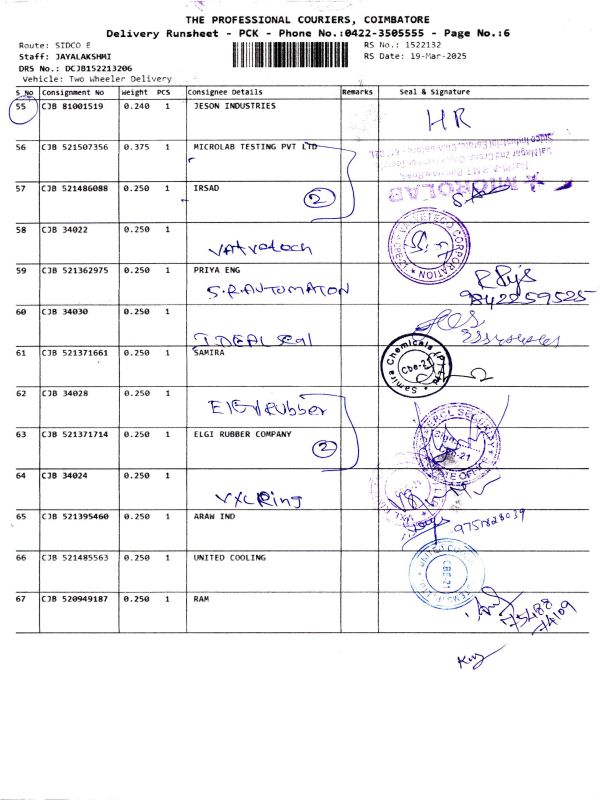 THE PROFESSIONAL COURIERS, COIMBATORE
Delivery Runsheet - PCK - Phone No.:0422-3505555 - Page No.:6
Route: SIDCO E RS No.: 1522132
Staff: JAYALAKSHMI RS Date: 19-Mar-2025
DRS No.: DCJB152213206
Vehicle: Two Wheeler Delivery
S No Consignment No Weight PCS Consignee Details Remarks Seal & Signature
55 CJB 81001519 0.240 1 JESON INDUSTRIES
HR
56 CJB 521507356 0.375 1 MICROLAB TESTING PVT LTD
MICROLAB
57 CJB 521486088 0.250 1 IRSAD
2
58 CJB 34022 0.250 1
CORPORATION
59 CJB 521362975 0.250 1 PRIYA ENG
S.R.AUTOMATON
9842259525
60 CJB 34030 0.250 1
IDEAL Seal
61 CJB 521371661 0.250 1 SAMIRA
Samira Chemicals (P) Ltd
Cbe-21
62 CJB 34028 0.250 1
Elgi Rubber
63 CJB 521371714 0.250 1 ELGI RUBBER COMPANY
2
SECURITY
64 CJB 34024 0.250 1
VXL Ring
65 CJB 521395460 0.250 1 ARAW IND
9751828039
66 CJB 521485563 0.250 1 UNITED COOLING
UNITED
CBE-21
67 CJB 520949187 0.250 1 RAM
75488
74109